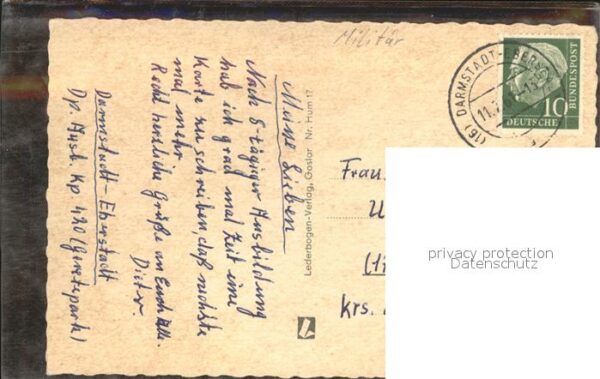 Militär
Meine Lieben
Nach 8-tägiger Ausbildung
hab ich grad mal Zeit eine
Karte zu schreiben, daß nächste
mal mehr.
Recht herzliche Grüße an Euch Alle.
Dieter.
Darmstadt-Eberstadt
Dp. Ausb. Kp 420 (Gerätepark)
Lederbogen-Verlag, Goslar Nr. Hum 17
(16) DARMSTADT-EBERST
11.7
10
DEUTSCHE
BUNDESPOST
Frau
U
(1
Krs.
privacy protection
Datenschutz